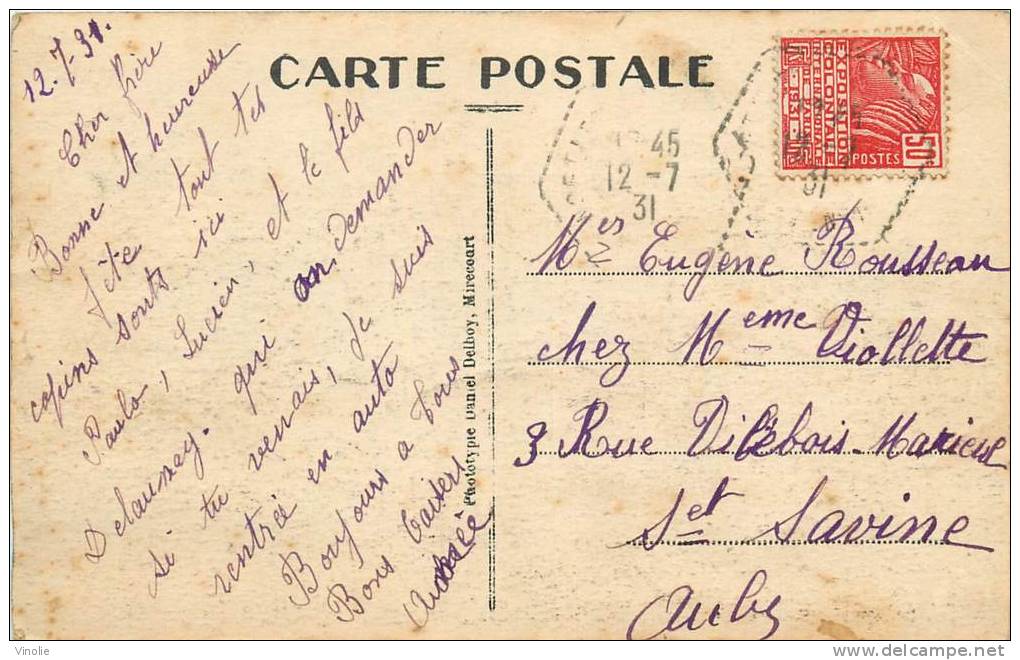 12.7-31.
CARTE POSTALE
Cher frère
Bonne et heureuse
fête
tout tes
copins sonts ici
Paulo, Lucien, et le fils
Delaunay. qui on demander
si tu venais, Je suis
rentrée en auto
Boujours a tous
Bons baisers
Phototypie Daniel Delboy, Mirecourt
EXPOSITION
COLONIALE
INTERNATIONALE
DE PARIS
1931
POSTES
50c
45
12 -7
31
31
Mer Eugène Rousseau
chez Meme Viollette
3 Rue Dilebois-Marieue
Set Savine
Aube
Vinolie
delcampe.net